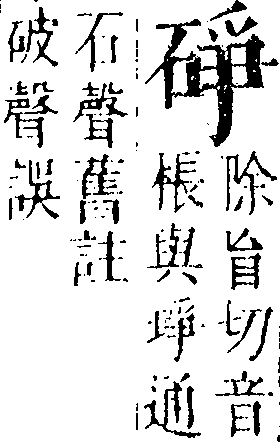 碀
除盲切音
棖與埩通
石聲舊註
破聲誤